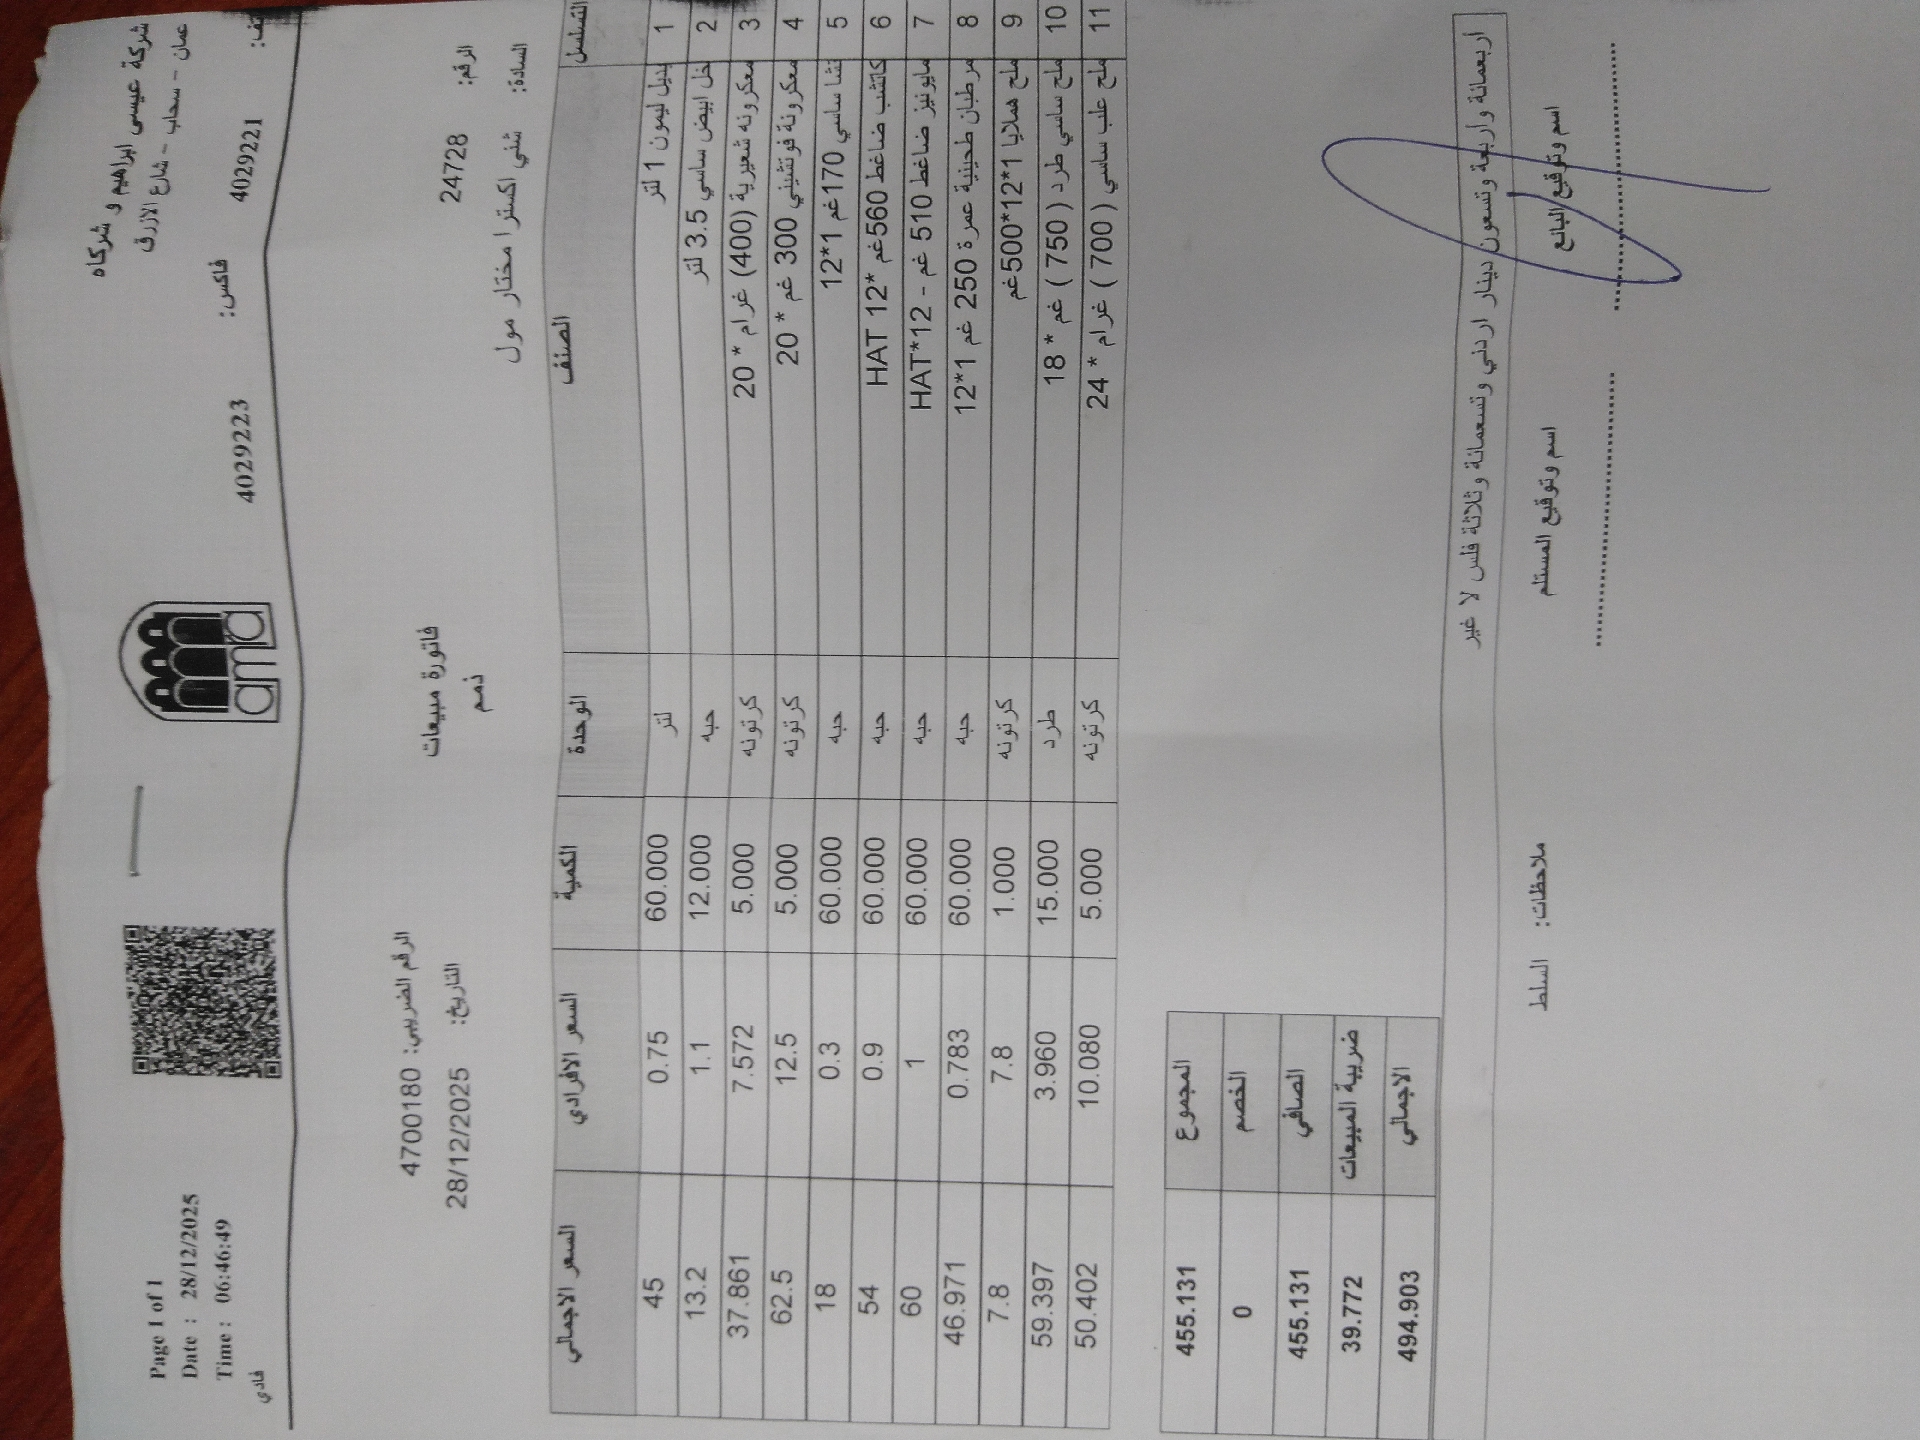 شركة عيسى ابراهيم و شركاه
عمان - سحاب - شارع الازرق
4029221 فاكس: 4029223
amra
Page 1 of 1
Date : 28/12/2025
Time : 06:46:49
فادي
فاتورة مبيعات
ذمم
الرقم الضريبي: 4700180
الرقم: 24728
التاريخ: 28/12/2025
السادة: شني اكسترا مختار مول
التسلسل الصنف الوحدة الكمية السعر الافرادي السعر الاجمالي
1 بديل ليمون 1 لتر لتر 60.000 0.75 45
2 خل ابيض ساسي 3.5 لتر حبه 12.000 1.1 13.2
3 معكرونه شعيرية (400) غرام * 20 كرتونه 5.000 7.572 37.861
4 معكرونة فوتشيني 300 غم * 20 كرتونه 5.000 12.5 62.5
5 نشا ساسي 170غم 1*12 حبه 60.000 0.3 18
6 كاتشب ضاغط 560غم *12 HAT حبه 60.000 0.9 54
7 مايونيز ضاغط 510 غم - 12*HAT حبه 60.000 1 60
8 مرطبان طحينية عمرة 250 غم 1*12 حبه 60.000 0.783 46.971
9 ملح هملايا 1*12*500غم كرتونه 1.000 7.8 7.8
10 ملح ساسي طرد ( 750 ) غم * 18 طرد 15.000 3.960 59.397
11 ملح علب ساسي ( 700 ) غرام * 24 كرتونه 5.000 10.080 50.402
المجموع 455.131
الخصم 0
الصافي 455.131
ضريبة المبيعات 39.772
الاجمالي 494.903
اربعمائة واربعة وتسعون دينار اردني وتسعمائة وثلاثة فلس لا غير
ملاحظات: السلط
اسم وتوقيع المستلم
اسم وتوقيع البائع